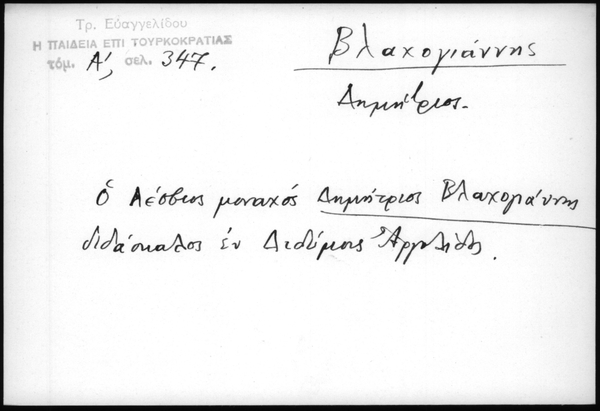 Τρ. Εὐαγγελίδου
Η ΠΑΙΔΕΙΑ ΕΠΙ ΤΟΥΡΚΟΚΡΑΤΙΑΣ
τόμ. Α', σελ. 347.
Βλαχογιάννης
Δημήτριος.
Ὁ Λέσβιος μοναχός Δημήτριος Βλαχογιάννης
διδάσκαλος ἐν Διδύμοις Ἀργολίδος.